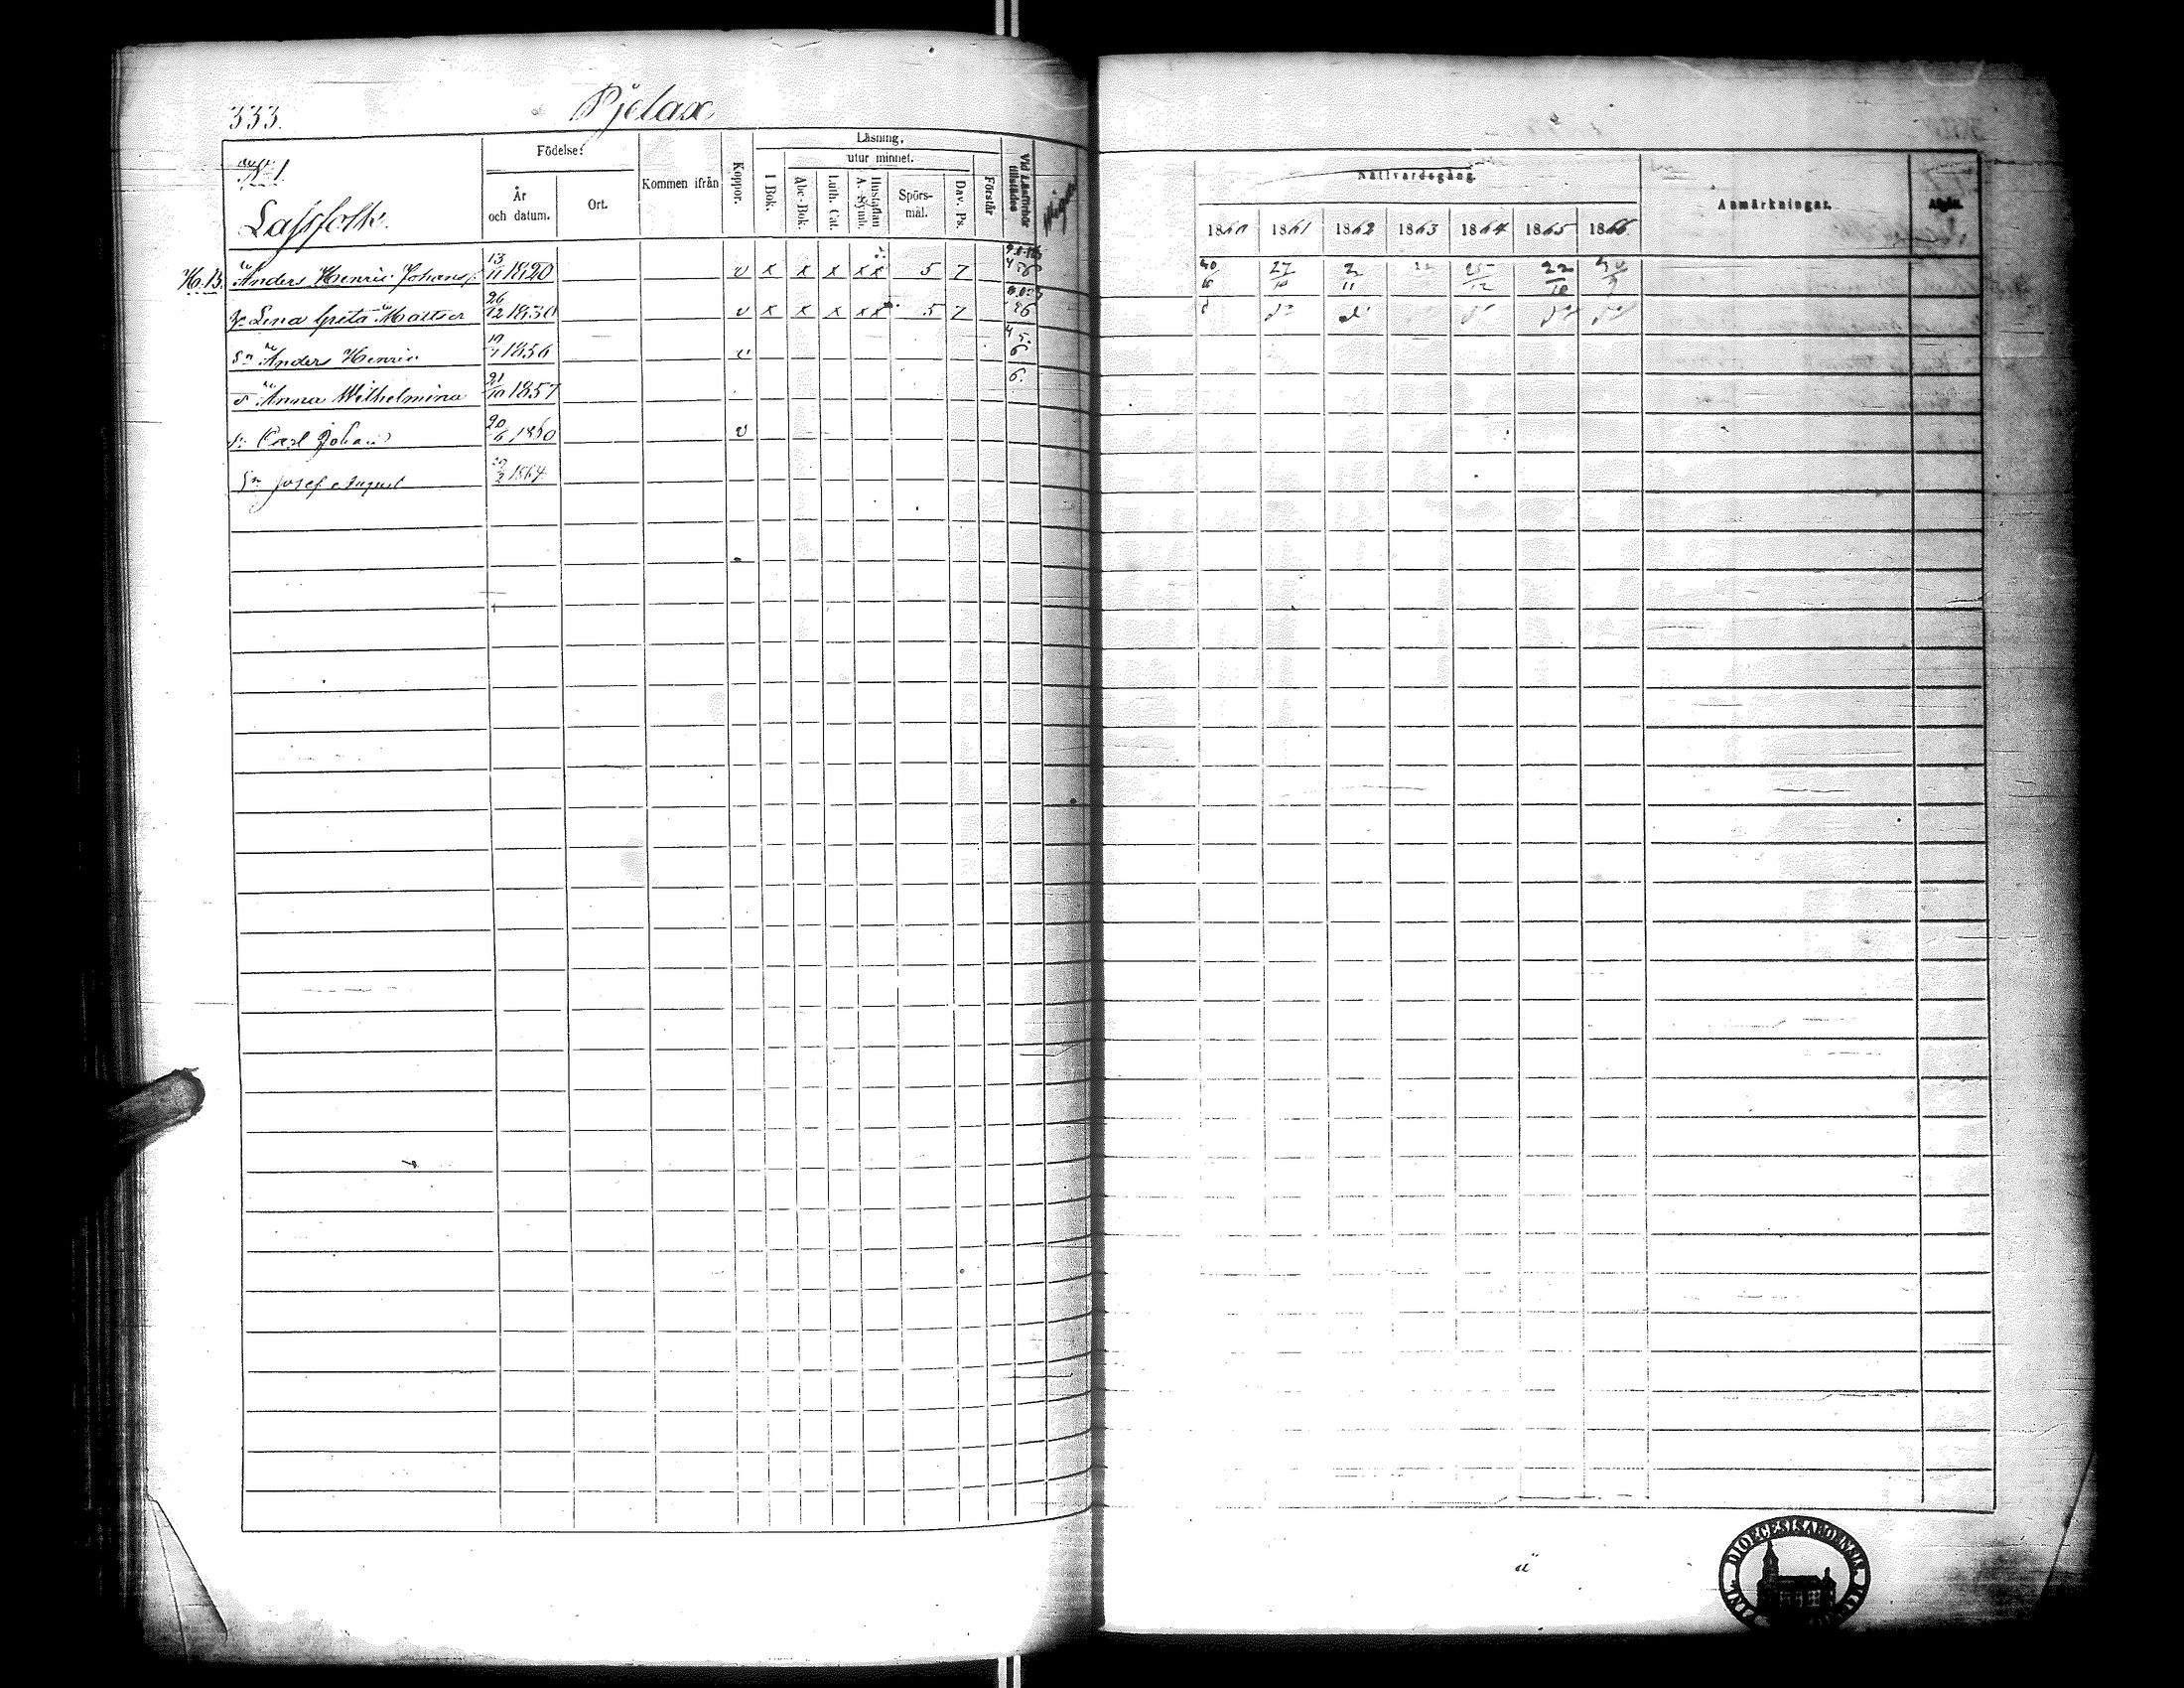 333.
Pjelax
No 1.
Lassfolk.
Födelse:
År och datum.
Ort.
Kommen ifrån
Koppor.
Läsning,
I Bok.
utur minnet.
Abc-Bok.
Luth. Cat.
Hustaflan A. Symb.
Spörsmål.
Dav. Ps.
Förstår
Vid Läsförhör tillstädes
Nattvardsgång.
1860 1861 1862 1863 1864 1865 1866
Anmärkningar.
H. B. Anders Henric Johans. 13/11 1820 v x x x xx 5 7 27/10 2/11 22/10
Lena Greta Mattsr 26/12 1830 v x x x xx 5 7
Sn Anders Henric 1856 v 6
d Anna Wilhelmina 21/10 1857 6.
Carl Johan 20/6 1860 v
Sn Josef August 1864
DIOECESIS ABOENSIS